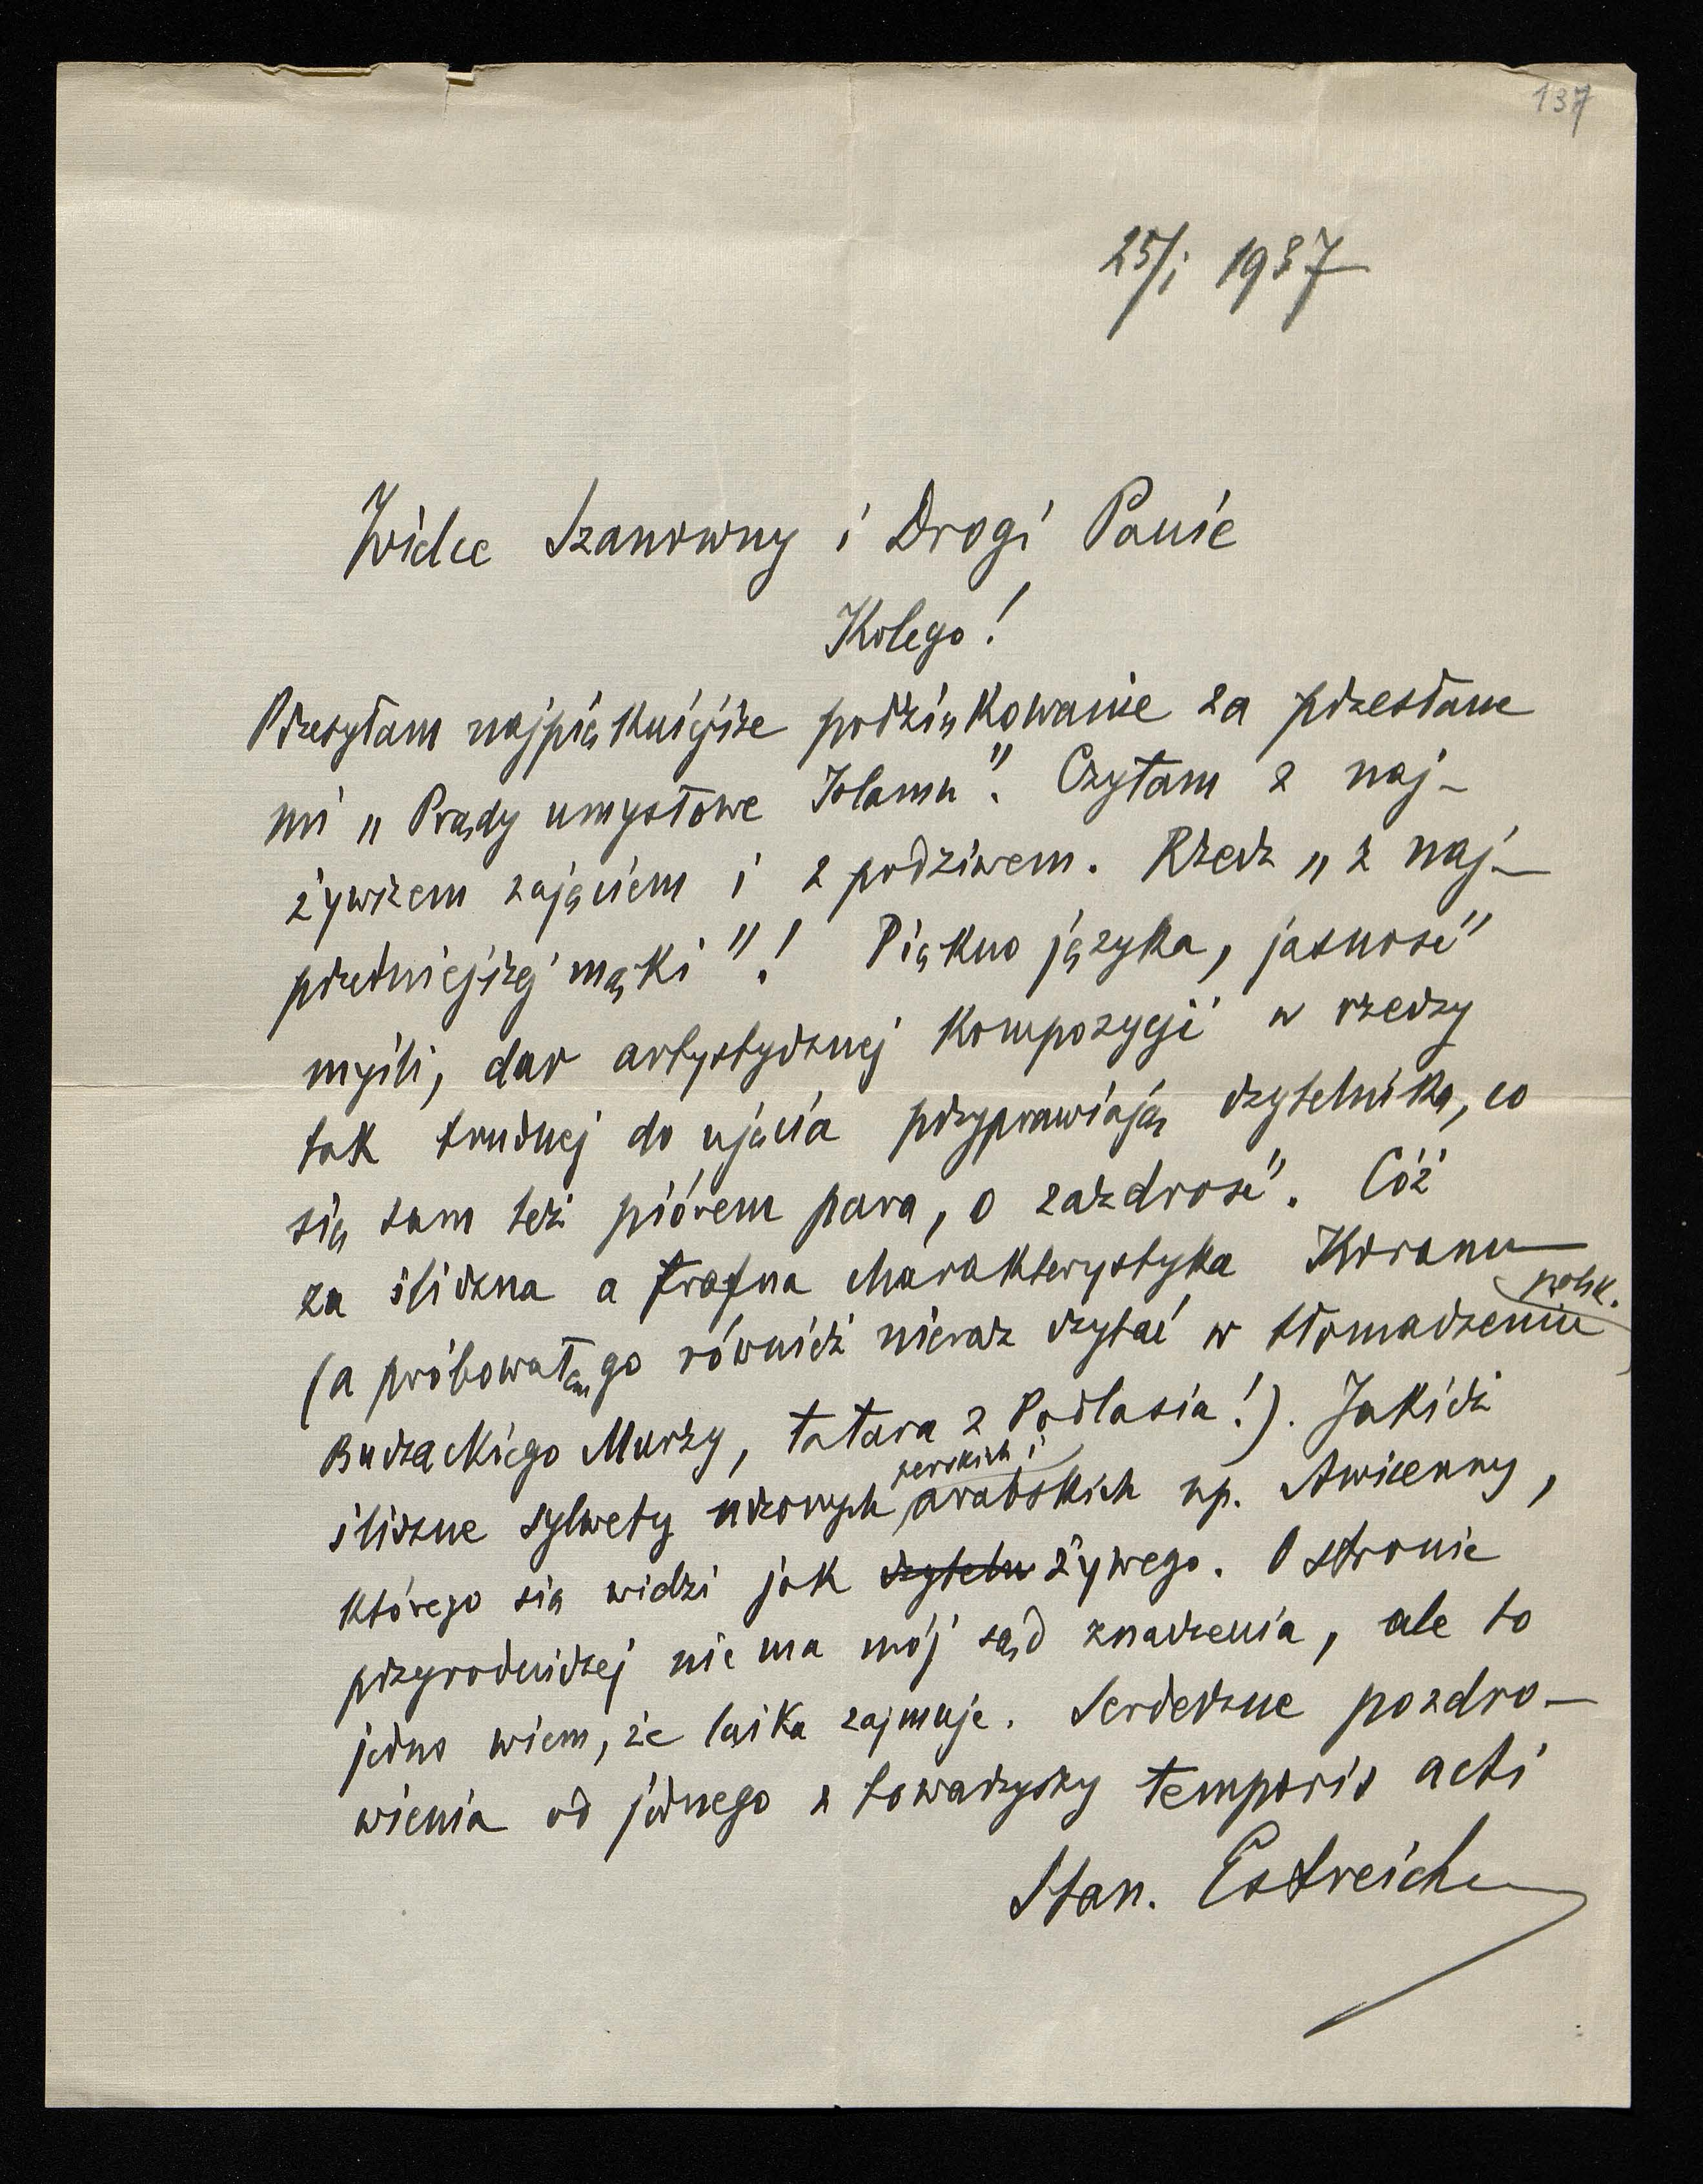 137
25/I 1937
Wielce Szanowny i Drogi Panie
Kolego!
Przesyłam najpiękniejsze podziękowanie za przesłane
mi „Prądy umysłowe Islamu". Czytam z naj-
żywszem zajęciem i z podziwem. Rzecz „z naj-
przedniejszej mąki"! Piękno języka, jasność
myśli, dar artystycznej kompozycji w rzeczy
tak trudnej do ujęcia przyprawiają czytelnika, co
się sam też piórem para, o zazdrość. Cóż
za śliczna a trafna charakterystyka Koranu
(a próbowałem go również nieraz czytać w polsk. tłomaczeniu
Buczackiego Murzy, tatara z Podlasia!). Jakież
śliczne sylwety uczonych perskich i arabskich np. Awicenny,
którego się widzi jak czyteln żywego. O stronie
przyrodniczej nie ma mój sąd znaczenia, ale to
jedno wiem, że laika zajmuje. Serdeczne pozdro-
wienia od jednego z towarzyszy temporis acti
Stan. Estreicher